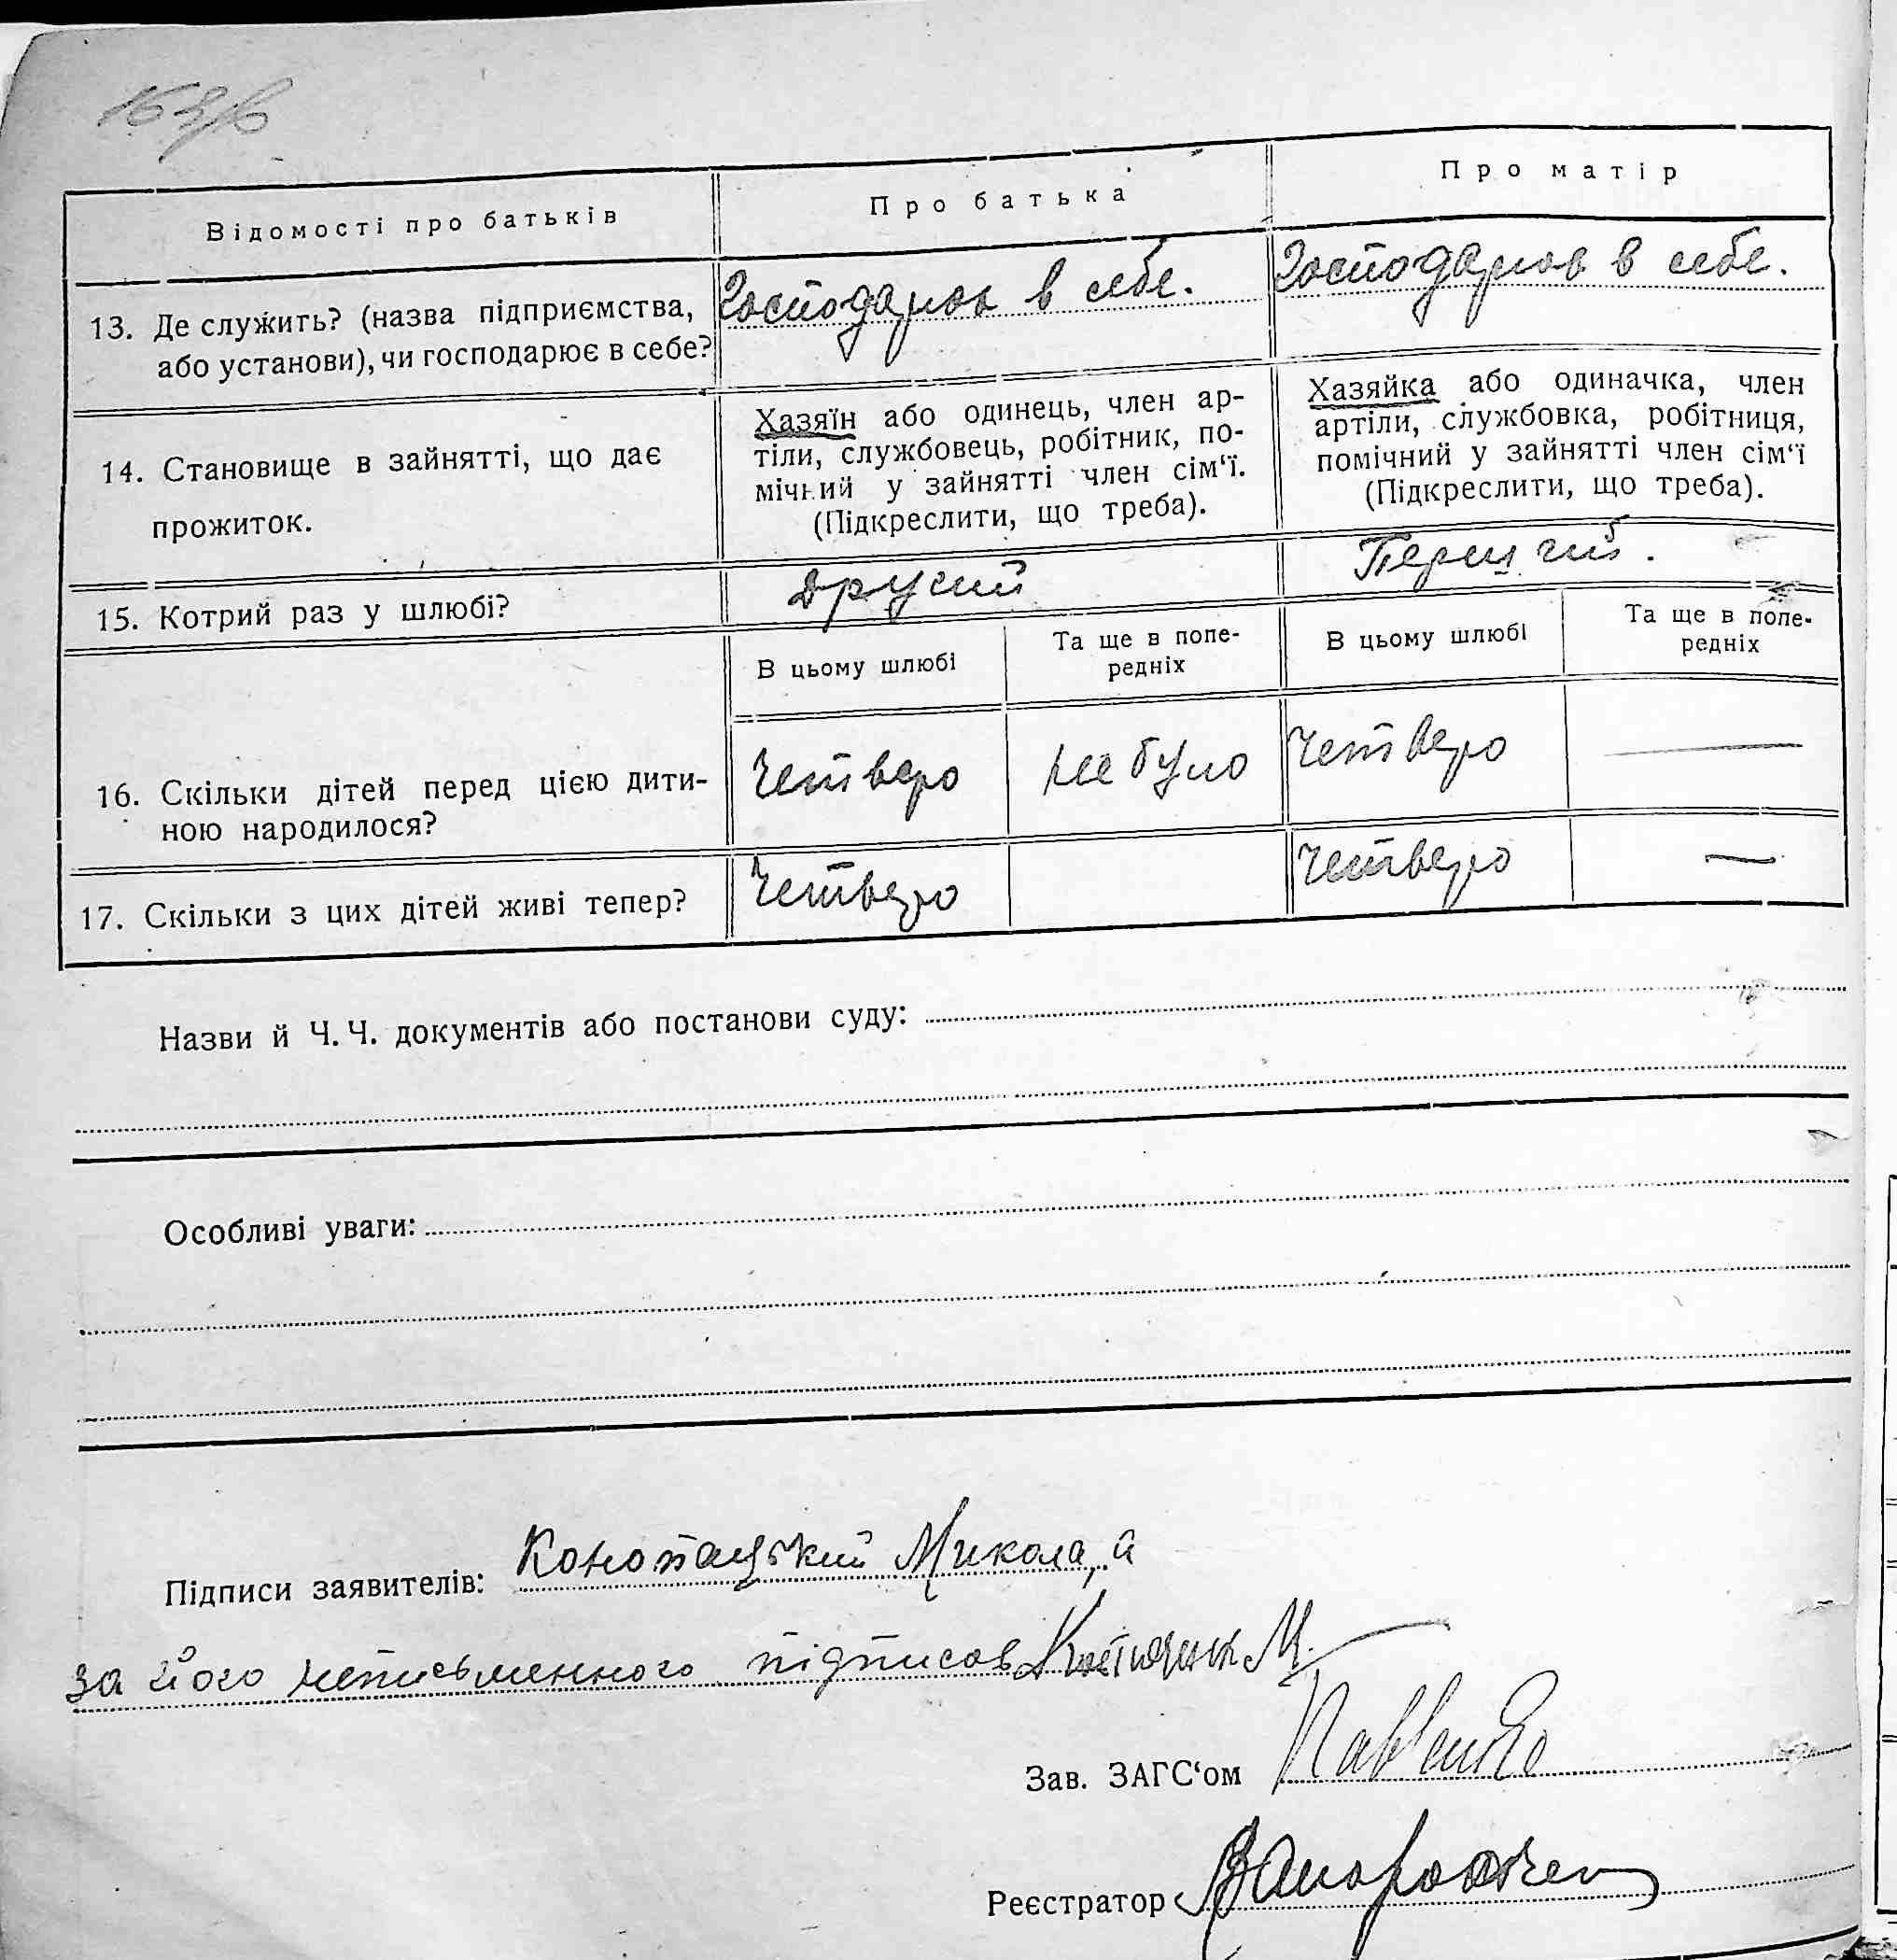 Відомості про батьків
Про батька
Про матір
13. Де служить? (назва підприємства,
або установи), чи господарює в себе?
Господарює в себе.
Господарює в себе.
14. Становище в зайнятті, що дає
прожиток.
Хазяїн або одинець, член ар-
тіли, службовець, робітник, по-
мічний у зайнятті член сім‘ї.
(Підкреслити, що треба).
Хазяйка або одиначка, член
артіли, службовка, робітниця,
помічний у зайнятті член сім‘ї
(Підкреслити, що треба).
15. Котрий раз у шлюбі?
Другий
Перший.
В цьому шлюбі
Та ще в попе-
редніх
В цьому шлюбі
Та ще в попе-
редніх
16. Скільки дітей перед цією дити-
ною народилося?
Четверо
Не було
Четверо
—
17. Скільки з цих дітей живі тепер?
Четверо
Четверо
—
Назви й Ч. Ч. документів або постанови суду:
Особливі уваги:
Підписи заявителів: Конопацький Микола, а
за його неписьменного підписов М.
Зав. ЗАГС‘ом
Реєстратор